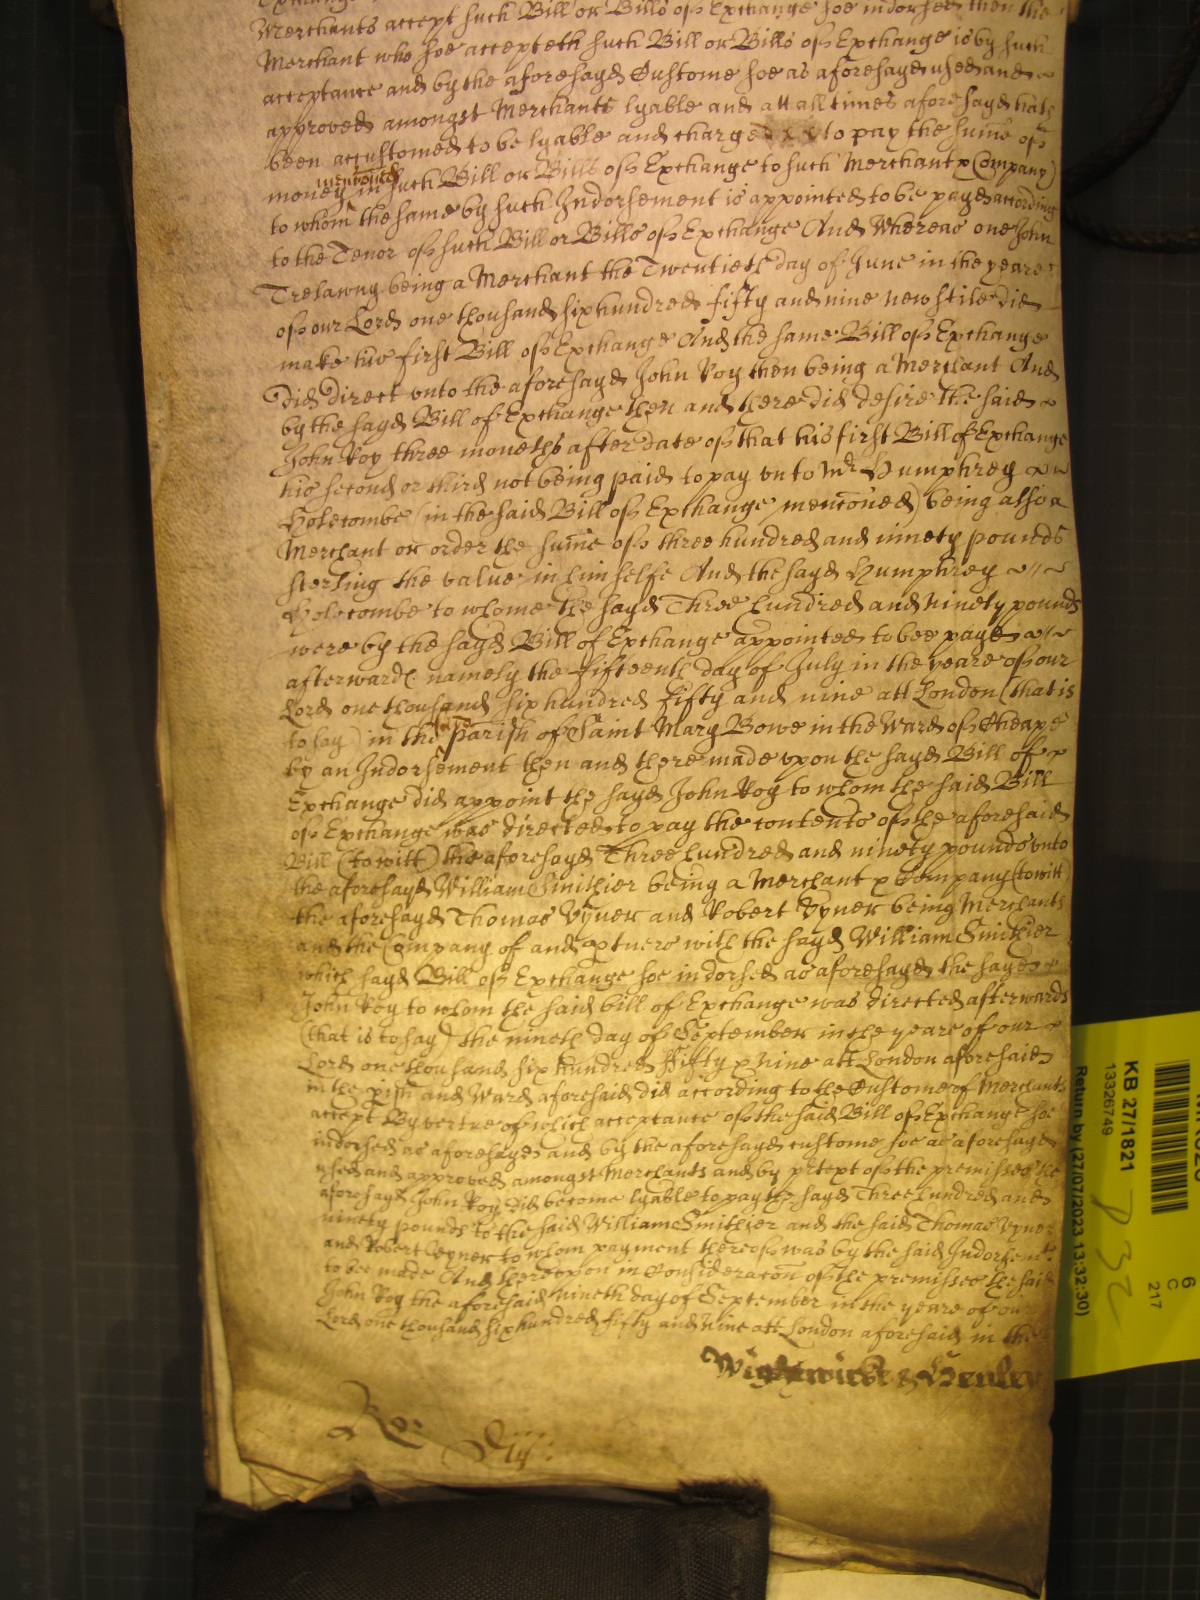 Merchants accept such Bill or Bills of Exchange soe indorsed then the
Merchant who soe accepteth such Bill or Bills of Exchange is by such
acceptance and by the aforesayd Custome soe as aforesayd used and
approved amongst Merchants lyable and att all times aforesayd hath
been accustomed to be lyable and charged to pay the sum̄e of
mentioned
money in such Bill or Bills of Exchange to such Merchant & Company
to whom the same by such Indorsement is appointed to be payd according
to the Tenor of such Bill or Bills of Exchange And Whereas one John
Trelawny being a Merchant the Twentieth day of June in the yeare
of our Lord one thousand six hundred fifty and nine new stile did
make his first Bill of Exchange And the same Bill of Exchange
Did Direct vnto the aforesayd John Roy then being a Merchant And
by the sayd Bill of Exchange then and there did desire the said
John Roy three moneths after date of that his first Bill of Exchange
his second or third not being paid to pay vnto Mr Humphrey
Holecombe (in the said Bill of Exchange mencōned) being also a
Merchant or order the sum̄e of three hundred and ninety pounds
sterling the value in himselfe And the sayd Humphrey
Holecombe to whome the sayd Three hundred and ninety pounds
were by the sayd Bill of Exchange appointed to bee payd
afterward namely the fifteenth day of July in the yeare of our
Lord one thousand six hundred fifty and nine att London (that is
to say) in the Parish of Saint Mary Bowe in the Ward of Cheape
by an Indorsement then and there made vpon the sayd Bill of
Exchange did appoint the sayd John Roy to whom the said Bill
of Exchange was directed to pay the contents of the aforesaid
Bill (to witt) the aforesayd Three hundred and ninety pounds vnto
the aforesayd William Smithier being a Merchant & Company (to witt)
the aforesayd Thomas Vyner and Robert Vyner being Merchants
and the Company of and ptners with the sayd William Smithier
which sayd Bill of Exchange soe indorsed as aforesayd the sayd
John Roy to whom the said bill of Exchange was directed afterwards
(that is to say) the nineth day of September in the yeare of our
Lord one thousand six hundred Fifty & Nine att London aforesaid
in the pish and Ward aforesaid did according to the Custome of Merchants
accept By vertue of which acceptance of the said Bill of Exchange soe
indorsed as aforesayd and by the aforesayd custome soe as aforesayd
vsed and approved amongst Merchants and by prtext of the premisses the
aforesayd John Roy did become lyable to pay the sayd Three hundred and
ninety pounds to the said William Smithier and the said Thomas Vyner
and Robert Vyner to whom payment thereof was by the said Indorsemt
to bee made And therevpon in Consideracōn of the premisses the said
John Roy the aforesaid nineth day of September in the yeare of our
Lord one thousand six hundred fifty and Nine att London aforesaid in the
Wightwicke & Henley
Ro:
KB 27/1821
13326749
Return by (27/07/2023 13:32:30)
6
C
217